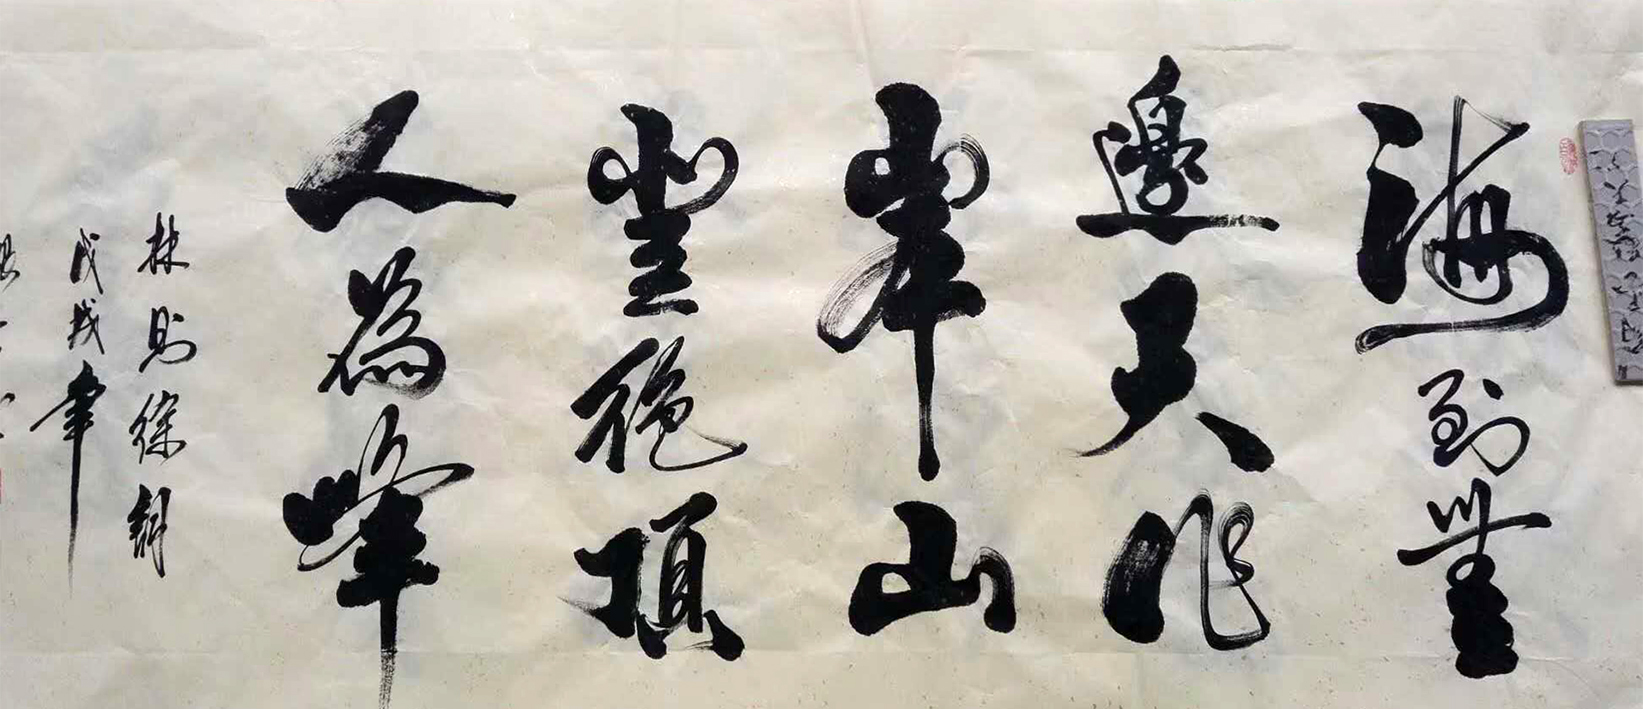 海到無
邊天作
岸山
登絕頂
人為峰
林則徐詞
戊戌年